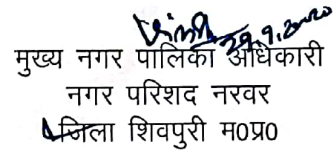 29.9.2020
मुख्य नगर पालिका अधिकारी
नगर परिशद नरवर
जिला शिवपुरी म0प्र0